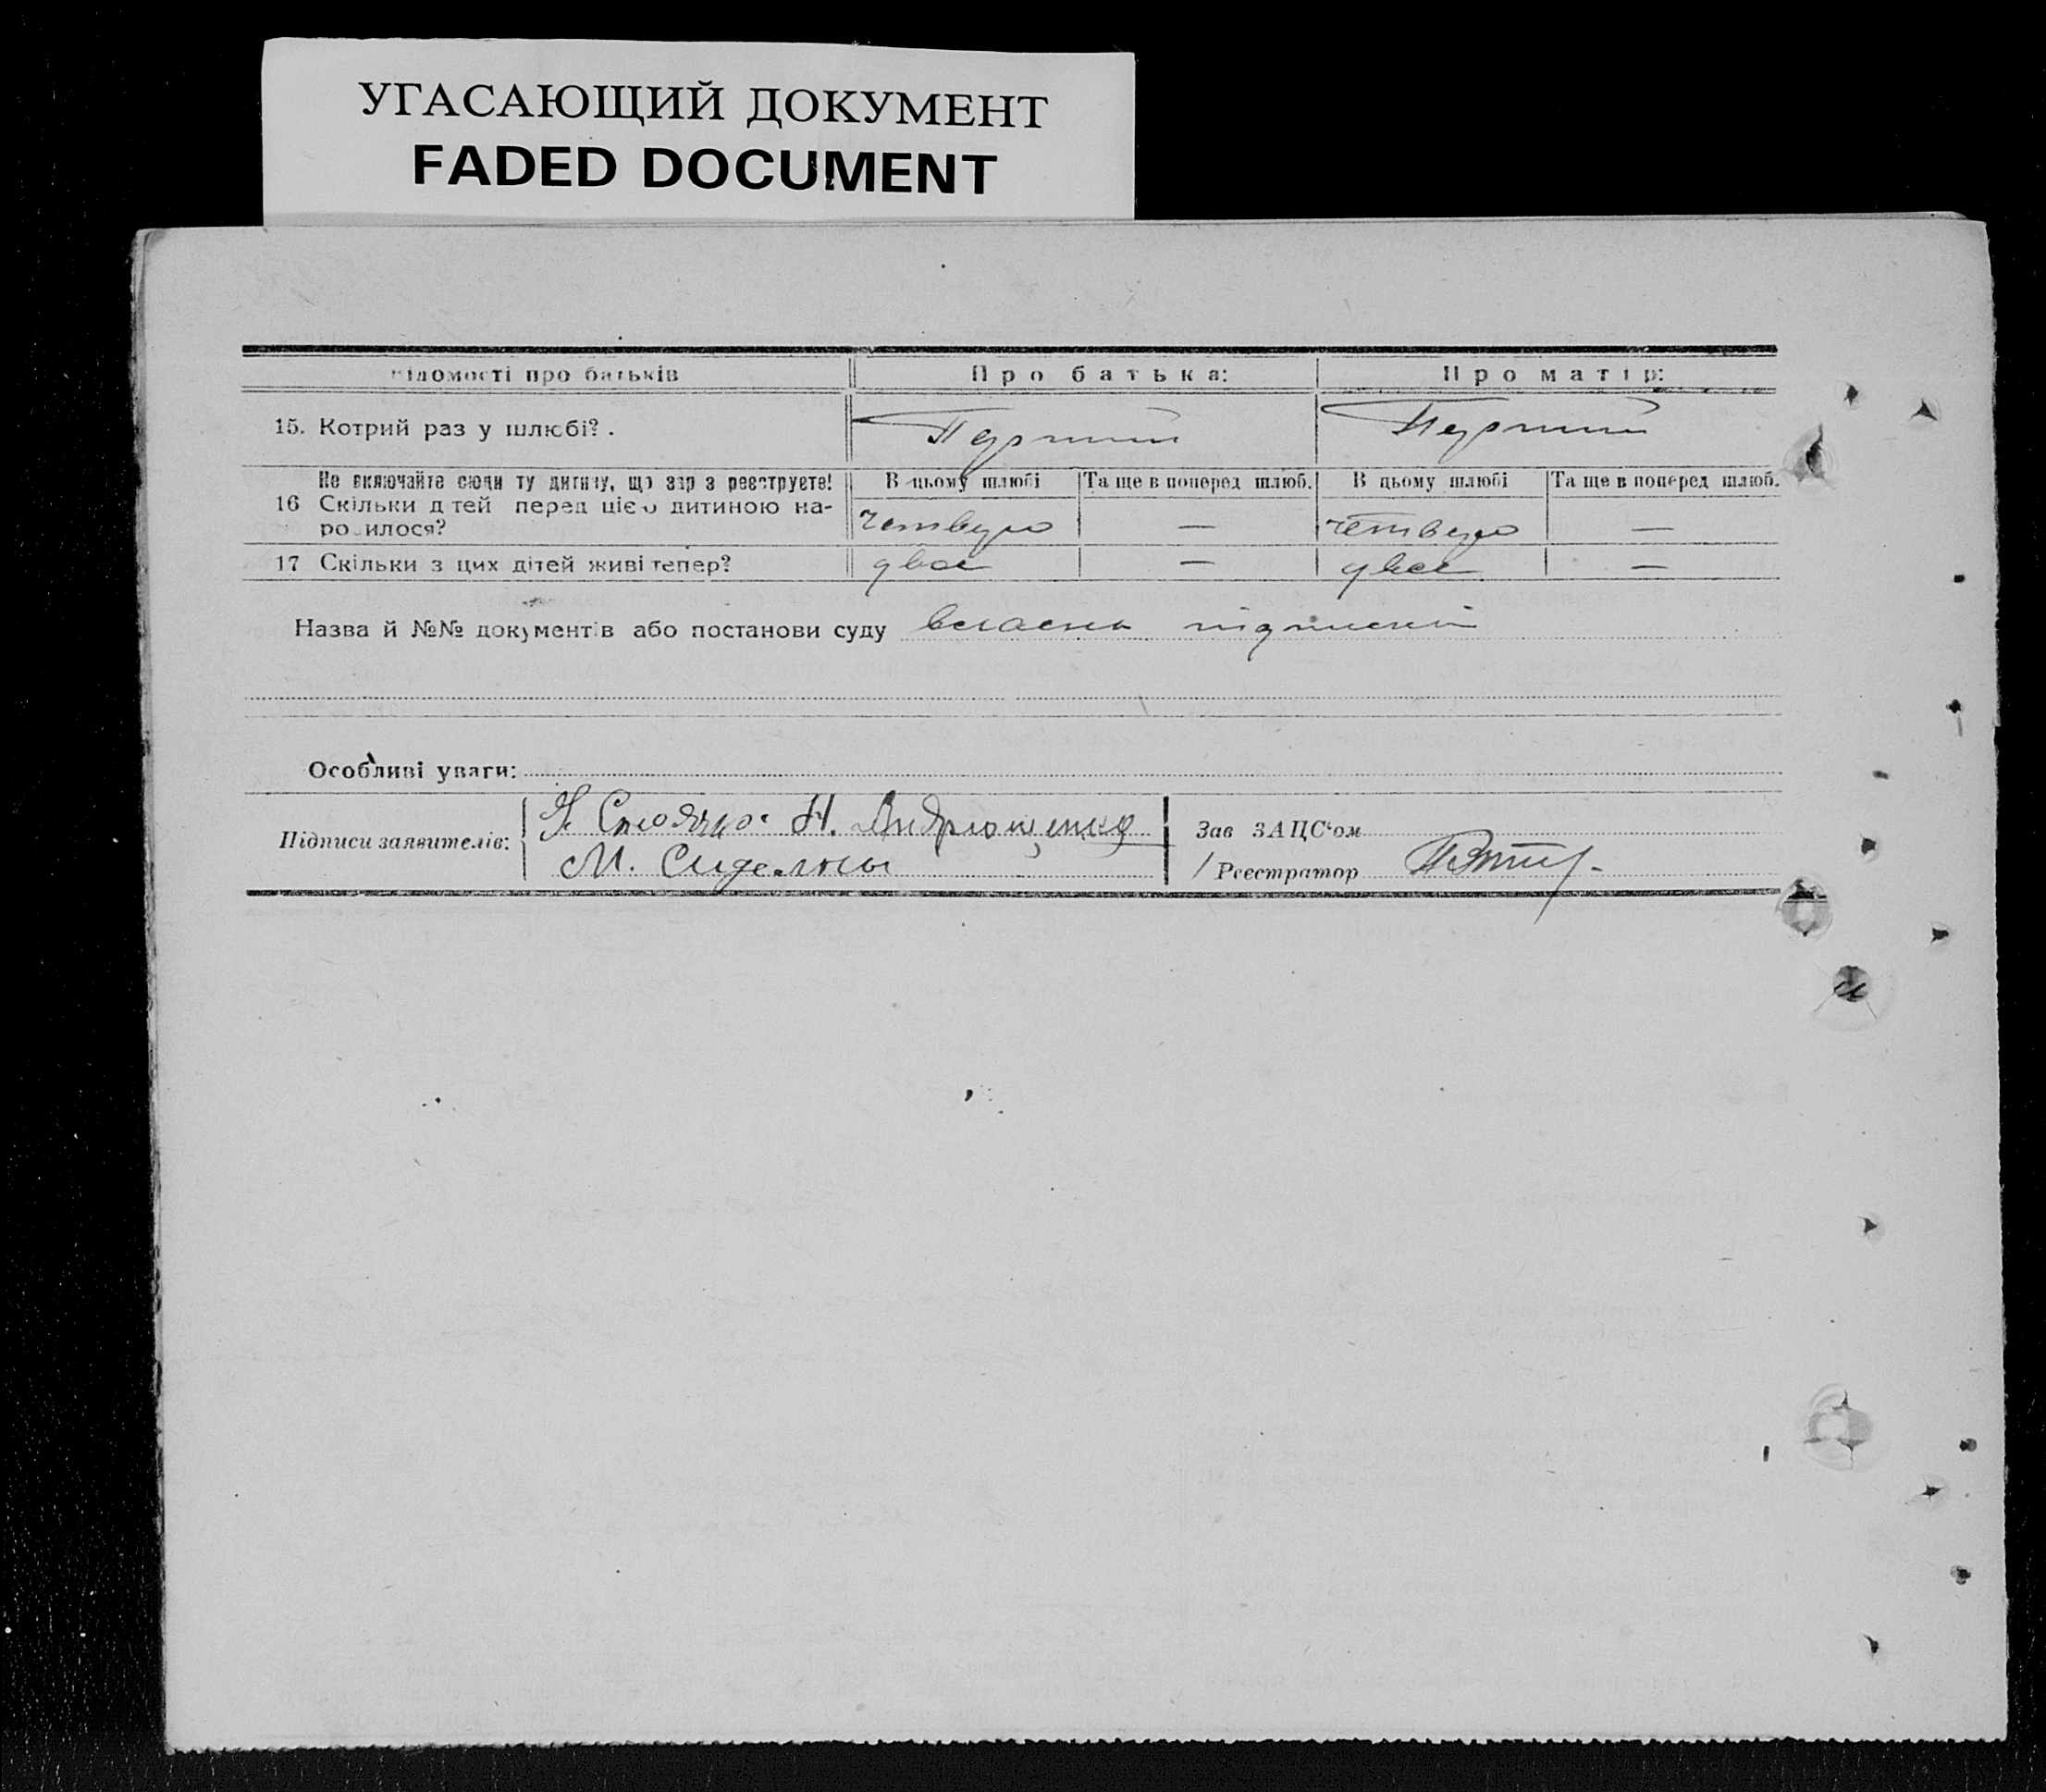 УГАСАЮЩИЙ ДОКУМЕНТ
FADED DOCUMENT
відомості про батьків Про батька: Про матір:
15. Котрий раз у шлюбі? . Перший Перший
Не включайте сюди ту дитину, що зараз реєструєте! В цьому шлюбі Та ще в поперед шлюб. В цьому шлюбі Та ще в поперед шлюб.
16 Скільки дітей перед цією дитиною на-
родилося? четверо — четверо —
17 Скільки з цих дітей живі тепер? двоє — двоє —
Назва й №№ документів або постанови суду власні підписки
Особливі уваги:
Підписи заявителів: Н. Андрющенко
М.
Зав ЗАЦС'ом
Реєстратор